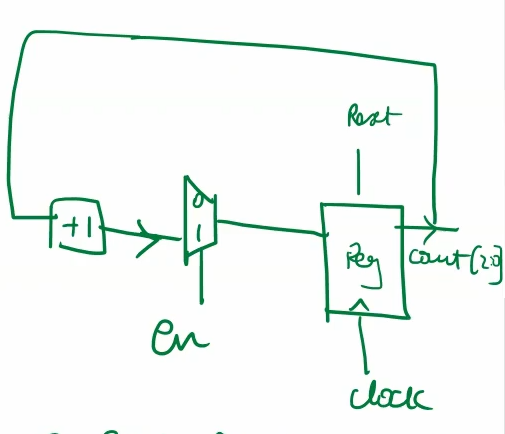 Reset
+1
0
1
Reg
count[2:0]
en
clock